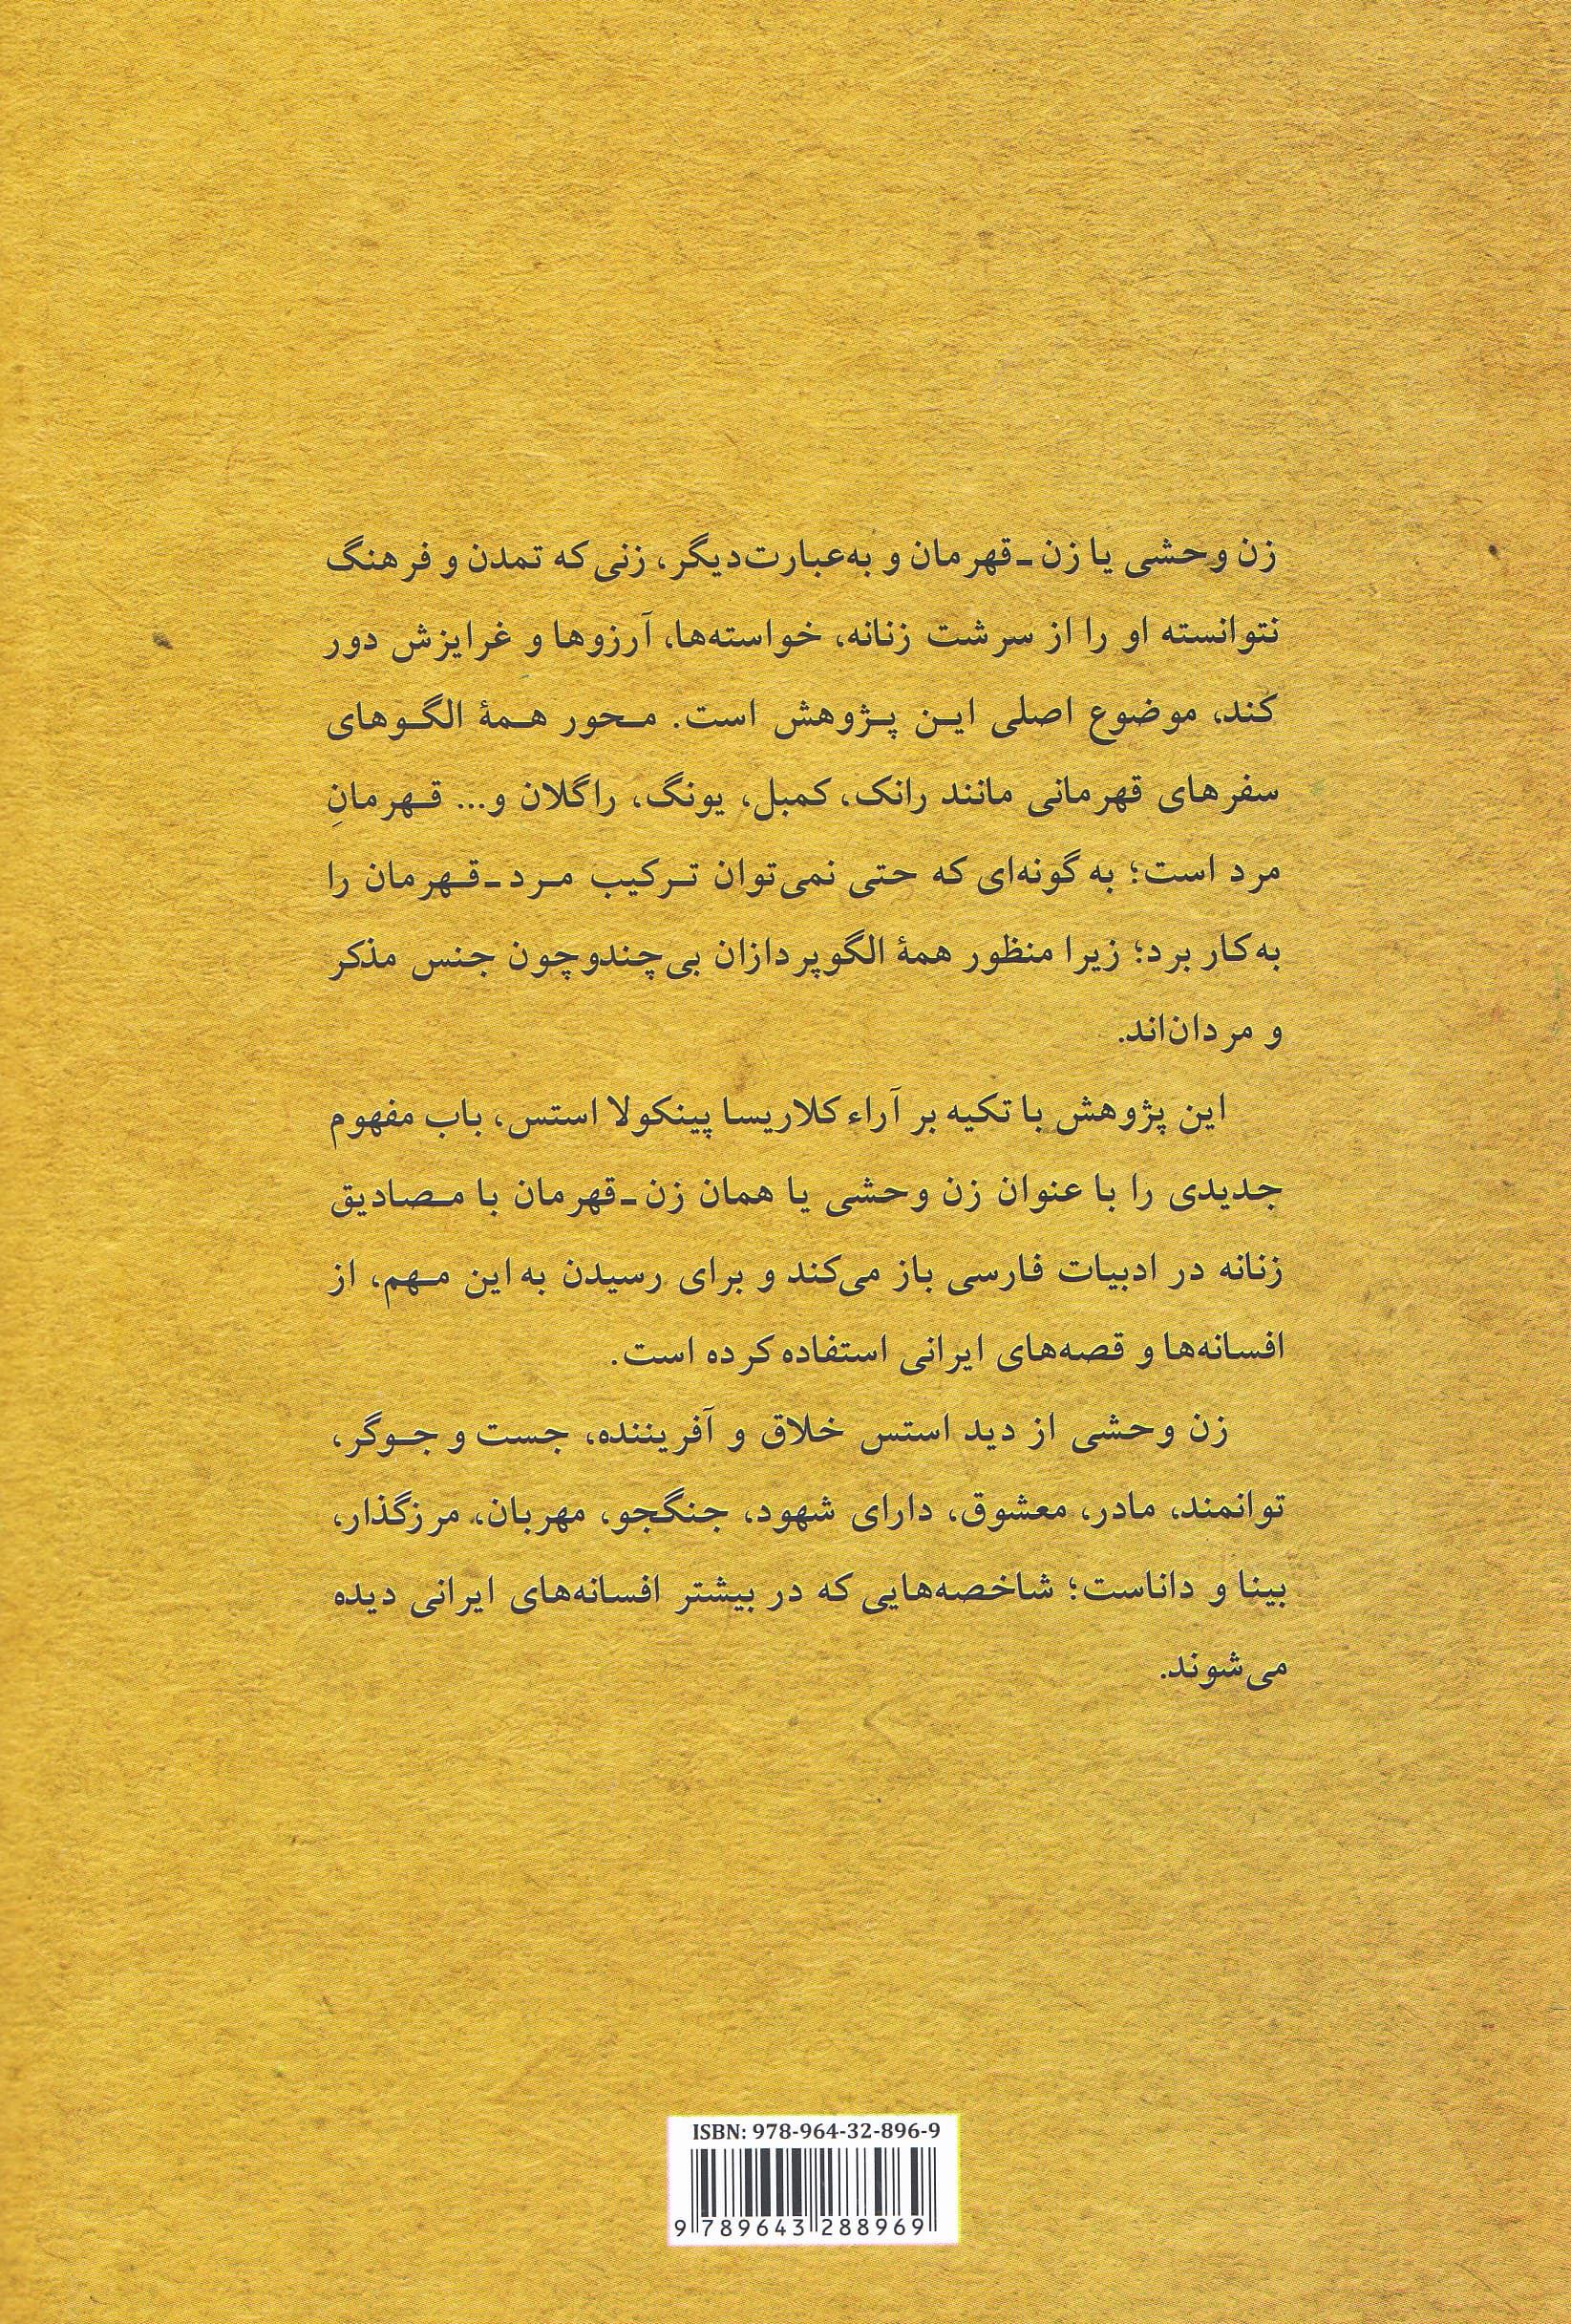 زن وحشی یا زن ـ قهرمان و به‌عبارت‌دیگر، زنی که تمدن و فرهنگ
نتوانسته او را از سرشت زنانه، خواسته‌ها، آرزوها و غرایزش دور
کند، موضوع اصلی این پژوهش است. محور همهٔ الگوهای
سفرهای قهرمانی مانند رانک، کمبل، یونگ، راگلان و... قهرمانِ
مرد است؛ به گونه‌ای که حتی نمی‌توان ترکیب مرد ـ قهرمان را
به کار برد؛ زیرا منظور همهٔ الگوپردازان بی‌چندوچون جنس مذکر
و مردان‌اند.
این پژوهش با تکیه بر آراء کلاریسا پینکولا استس، باب مفهوم
جدیدی را با عنوان زن وحشی یا همان زن ـ قهرمان با مصادیق
زنانه در ادبیات فارسی باز می‌کند و برای رسیدن به این مهم، از
افسانه‌ها و قصه‌های ایرانی استفاده کرده است.
زن وحشی از دید استس خلاق و آفریننده، جست و جوگر،
توانمند، مادر، معشوق، دارای شهود، جنگجو، مهربان، مرزگذار،
بینا و داناست؛ شاخصه‌هایی که در بیشتر افسانه‌های ایرانی دیده
می‌شوند.
ISBN: 978-964-32-896-9
9 789643 288969